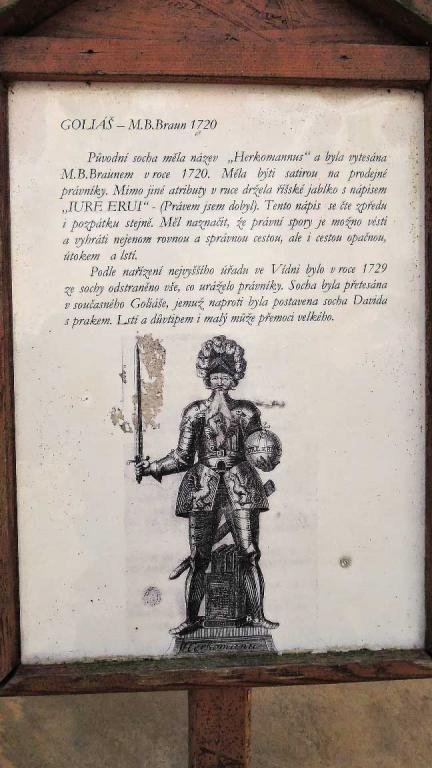 GOLIÁŠ – M.B.Braun 1720
Původní socha měla název „Herkomannus“ a byla vytesána
M.B.Braunem v roce 1720. Měla býti satirou na prodejné
právníky. Mimo jiné atributy v ruce držela říšské jablko s nápisem
„IURE ERUI“ - (Právem jsem dobyl). Tento nápis se čte zpředu
i pozpátku stejně. Měl naznačit, že právní spory je možno vésti
a vyhráti nejenom rovnou a správnou cestou, ale i cestou opačnou,
útokem a lstí.
Podle nařízení nejvyššího úřadu ve Vídni bylo v roce 1729
ze sochy odstraněno vše, co uráželo právníky. Socha byla přetesána
v současného Goliáše, jemuž naproti byla postavena socha Davida
s prakem. Lstí a důvtipem i malý může přemoci velkého.